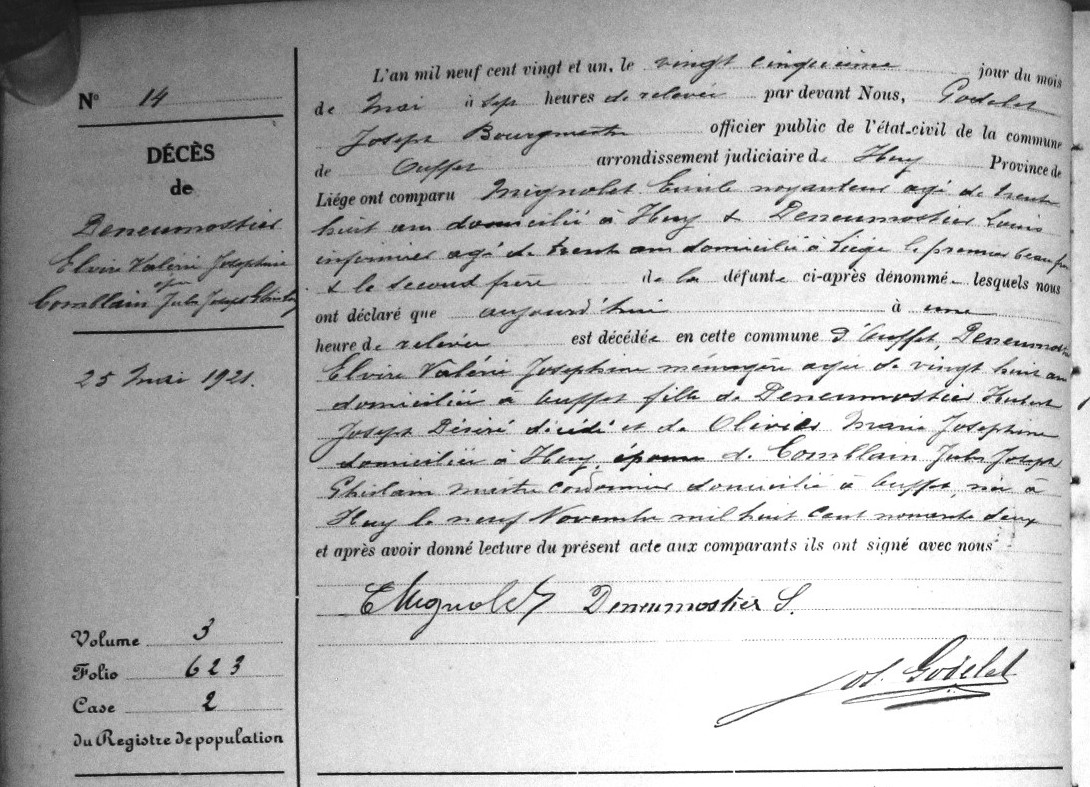 N° 14
DÉCÈS
de
Deneumostier
Elvire Valérie Joséphine
épse
Comblain Jules Joseph Ghislain
25 Mai 1921.
Volume 3
Folio 623
Case 2
du Registre de population
L'an mil neuf cent vingt et un, le vingt cinquième jour du mois
de Mai à sept heures de relevée par devant Nous, Godelet
Joseph Bourgmestre officier public de l'état-civil de la commune
de Ouffet arrondissement judiciaire de Huy Province de
Liége ont comparu Mignolet Emile agé de trente
huit ans domicilié à Huy & Deneumostier Louis
infirmier agé de trente ans domicilié à Liége le premier beau frère
& le second frère de la défunte ci-après dénommé lesquels nous
ont déclaré que aujourd'hui à une
heure de relevée est décédée en cette commune d'Ouffet, Deneumostier
Elvire Valérie Joséphine ménagère agée de vingt huit ans
domiciliée à Ouffet fille de Deneumostier Hubert
Joseph Désiré décédé et de Olivier Marie Joséphine
domiciliée à Huy, épouse de Comblain Jules Joseph
Ghislain maître cordonnier domicilié à Ouffet, née à
Huy le neuf Novembre mil huit cent nonante deux
et après avoir donné lecture du présent acte aux comparants ils ont signé avec nous
E Mignolet Deneumostier L.
Jos. Godelet